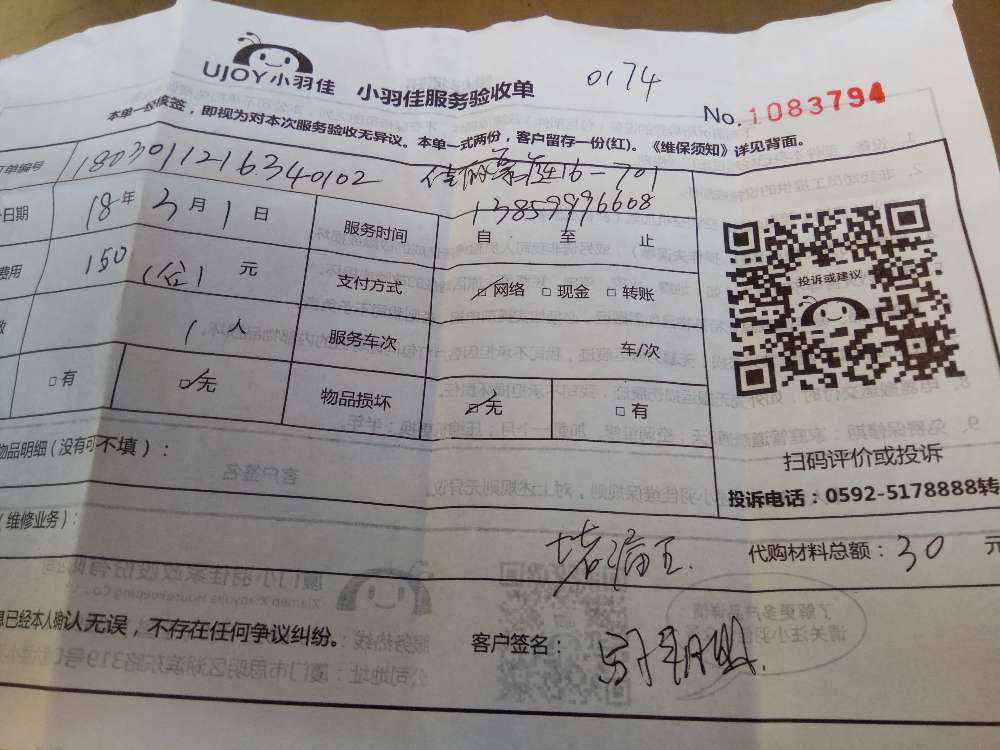 UJOY小羽佳 小羽佳服务验收单 0174
No.1083794
本单一经核签，即视为对本次服务验收无异议。本单一式两份，客户留存一份(红)。《维保须知》详见背面。
单编号 1803011216340102 16-701
日期 18年3月1日 服务时间 13859996608
自 至 止
费用 150 元 支付方式 网络 现金 转账
1人 服务车次 车/次
有 无 物品损坏 无 有
投诉或建议
扫码评价或投诉
投诉电话：0592-5178888转
物品明细(没有可不填)：
(维修业务)：
堵漏王. 代购材料总额：30 元
息已经本人确认无误，不存在任何争议纠纷。 客户签名：